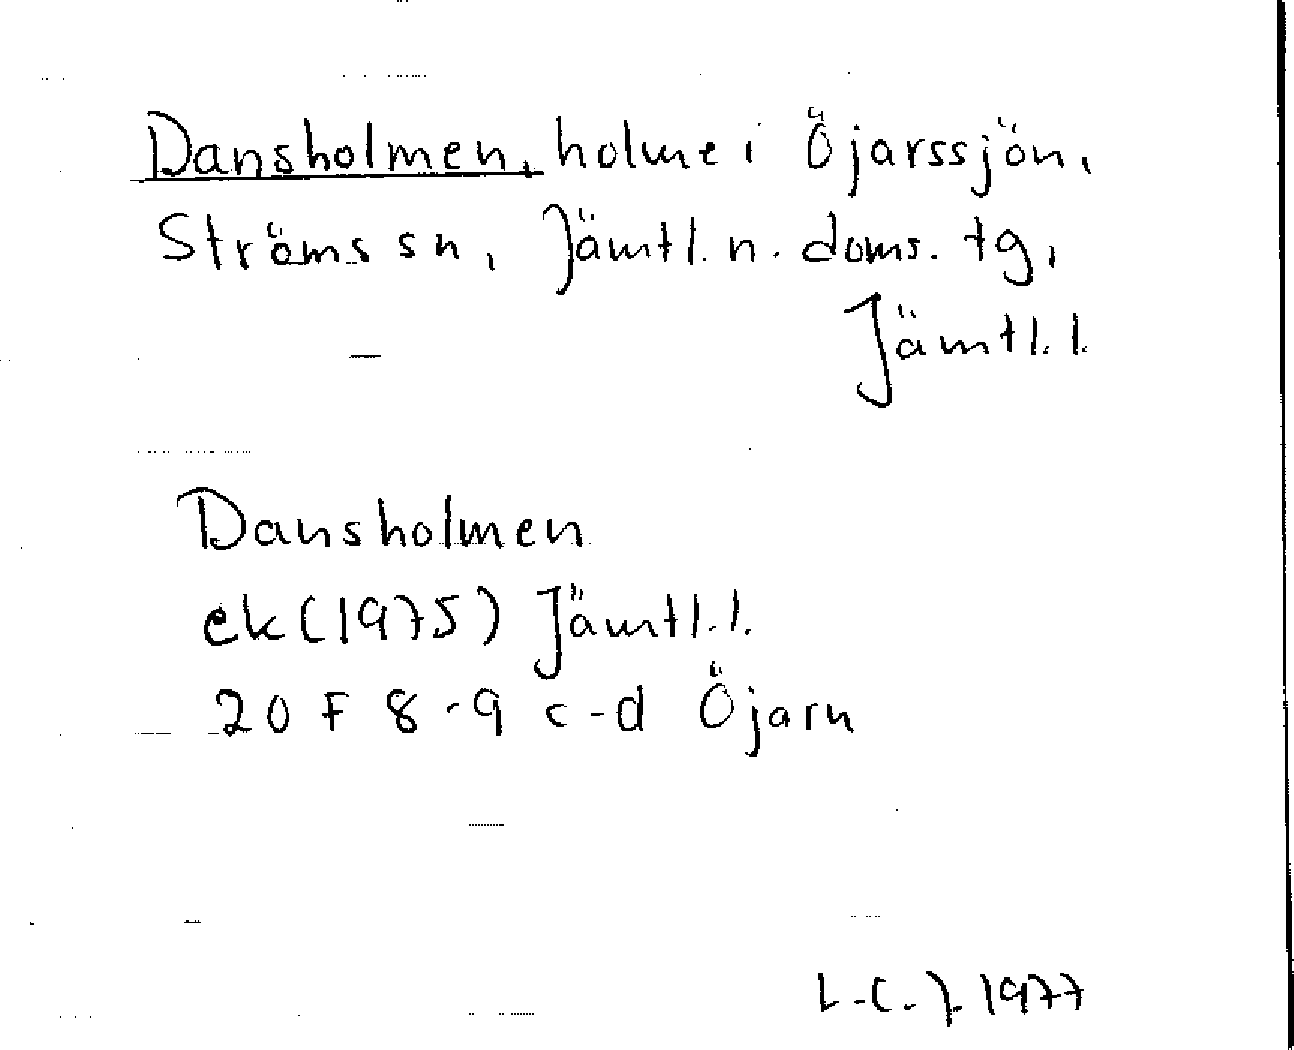 Dansholmen, holme i Öjarssjön,
Ströms sn, Jämtl. n. doms. tg,
Jämtl. l.
Dansholmen
ek (1975) Jämtl. l.
20 F 8-9 c-d Öjarn
L-C. J. 1977